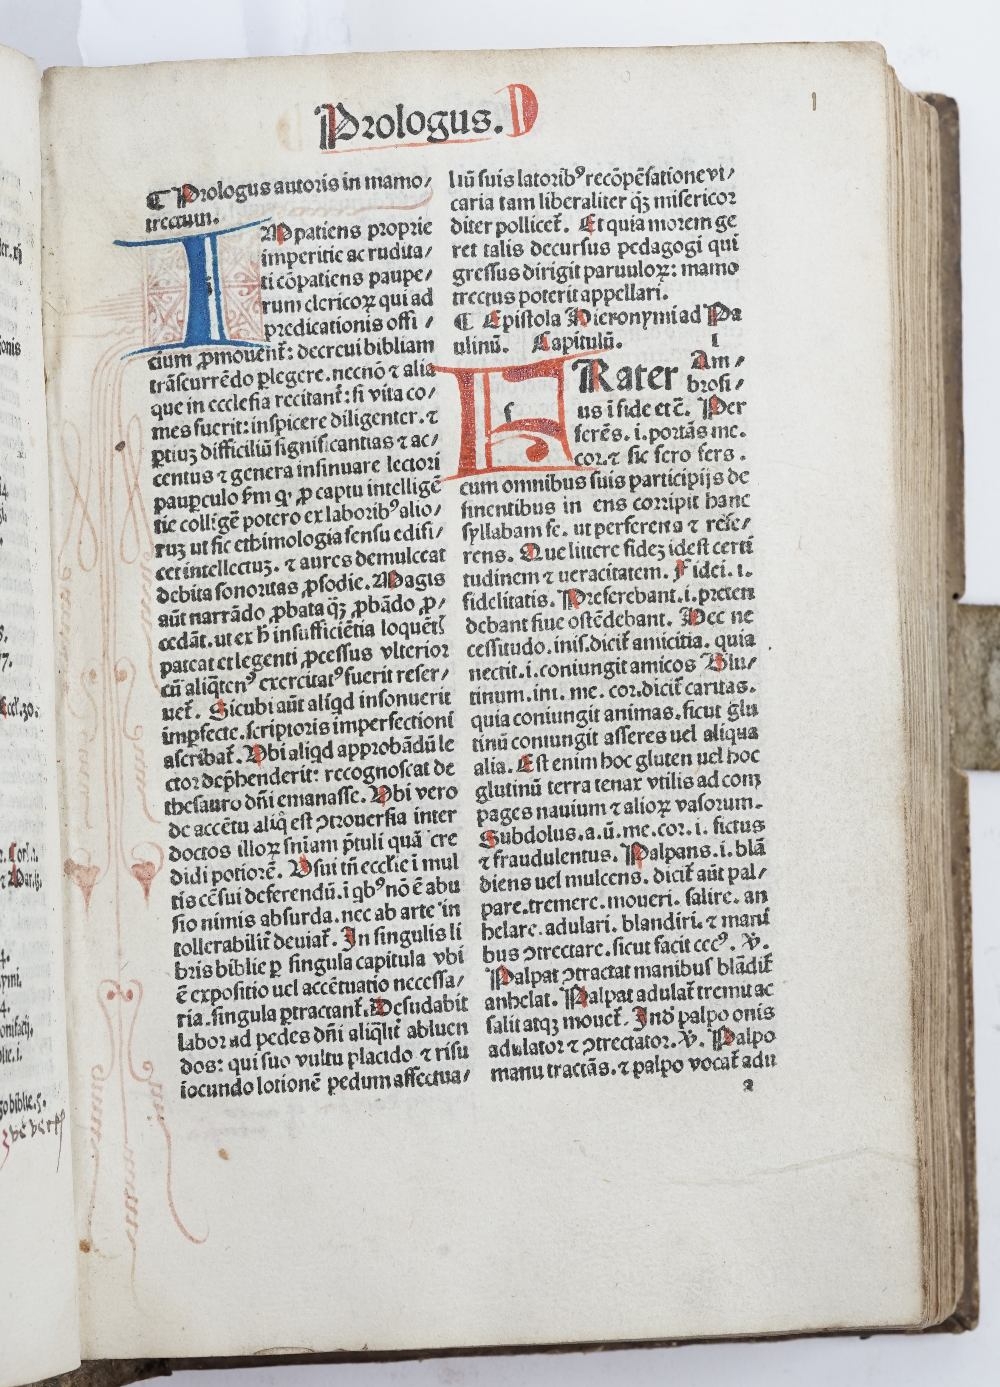 Prologus.
1
¶ Prologus autoris in mamo/
trectum.
IMpatiens proprie
imperitie ac rudita/
ti cōpatiens paupe/
rum clericoꝝ qui ad
predicationis offi/
cium ꝓmouent̄: decreui bibliam
trāscurrēdo ꝑlegere. necnō ⁊ alia
que in ecclesia recitant̄: si vita co/
mes fuerit: inspicere diligenter. ⁊
ꝑtiuꝫ difficiliū significantias ⁊ ac/
centus ⁊ genera insinuare lectori
pauꝑculo
ꝓ captu intelligē
tie colligē potero ex laboribꝰ alio/
ruꝫ ut sic ethimologia sensu edifi/
cet intellectuꝫ. ⁊ aures demulceat
debita sonoritas ꝓsodie. Magis
aūt narrādo ꝓbata qꝫ̄ ꝓbādo ꝓ/
cedāt. ut ex h̄ insufficiētia loquētꝭ
pateat et legenti ꝓcessus vlterior
cū aliqtenꝰ exercitatꝰ fuerit reser/
uet̄. Sicubi aūt aliqd insonuerit
imꝑfecte. scriptoris imperfectioni
ascribat̄. Vbi aliqd approbādū le
ctor dep̄henderit: recognoscat de
thesauro dn̄i emanasse. Vbi vero
de accētu aliq̄ est ꝯtrouersia inter
doctos illoꝝ sn̄iam p̄tuli quā cre
didi potiorē. Vsui tn̄ ecclīe ī mul
tis cēsui deferendū. ī qbꝰ nō ē abu
sio nimis absurda. nec ab arte in
tollerabilit̄ deuiat̄. In singulis li
bris biblie ꝑ singula capitula vbi
ē expositio uel accētuatio necessa/
ria. singula ꝑtractant̄. Desudabit
labor ad pedes dn̄i aliqlit̄ abluen
dos: qui suo vultu placido ⁊ risu
iocundo lotionē pedum affectua/
liū suis latoribꝰ recōpēsatione vi/
caria tam liberaliter qꝫ misericor
diter pollicet̄. Et quia morem ge
ret talis decursus pedagogi qui
gressus dirigit paruuloꝝ: mamo
trectus poterit appellari.
¶ Epistola Hieronymi ad Pa
ulinū. Capitulū. I
FRater Am/
brosi/
us ī fide et c̄. Per
ferēs. i. portās me.
cor. ⁊ sic fero fers.
cum omnibus suis participijs de
sinentibus in ens corripit hanc
syllabam fe. ut perferens ⁊ refe/
rens. Que littere fideꝫ id est certi
tudinem ⁊ ueracitatem. Fidei. i.
fidelitatis. Preferebant. i. preten
debant siue ostēdebant. Nec ne
cessitudo. inis. dicit̄ amicitia. quia
nectit. i. coniungit amicos Glu/
tinum. ini. me. cor. dicit̄ caritas.
quia coniungit animas. sicut glu
tinū coniungit asseres uel aliqua
alia. Est enim hoc gluten uel hoc
glutinū terra tenax vtilis ad com
pages nauium ⁊ alioꝝ vasorum.
Subdolus. a. ū. me. cor. i. fictus
⁊ fraudulentus. Palpans. i. blā
diens uel mulcens. dicit̄ aūt pal/
pare. tremere. moueri. salire. an
helare. adulari. blandiri. ⁊ mani
bus ꝯtrectare. sicut facit cecꝰ. V̛.
Palpat ꝯtractat manibus blādit̄
anhelat. Palpat adulat̄ tremit ac
salit atqꝫ mouet̄. Ind̄ palpo onis
adulator ⁊ ꝯtrectator. V̛. Palpo
manu tractās. ⁊ palpo vocat̄ adu
a